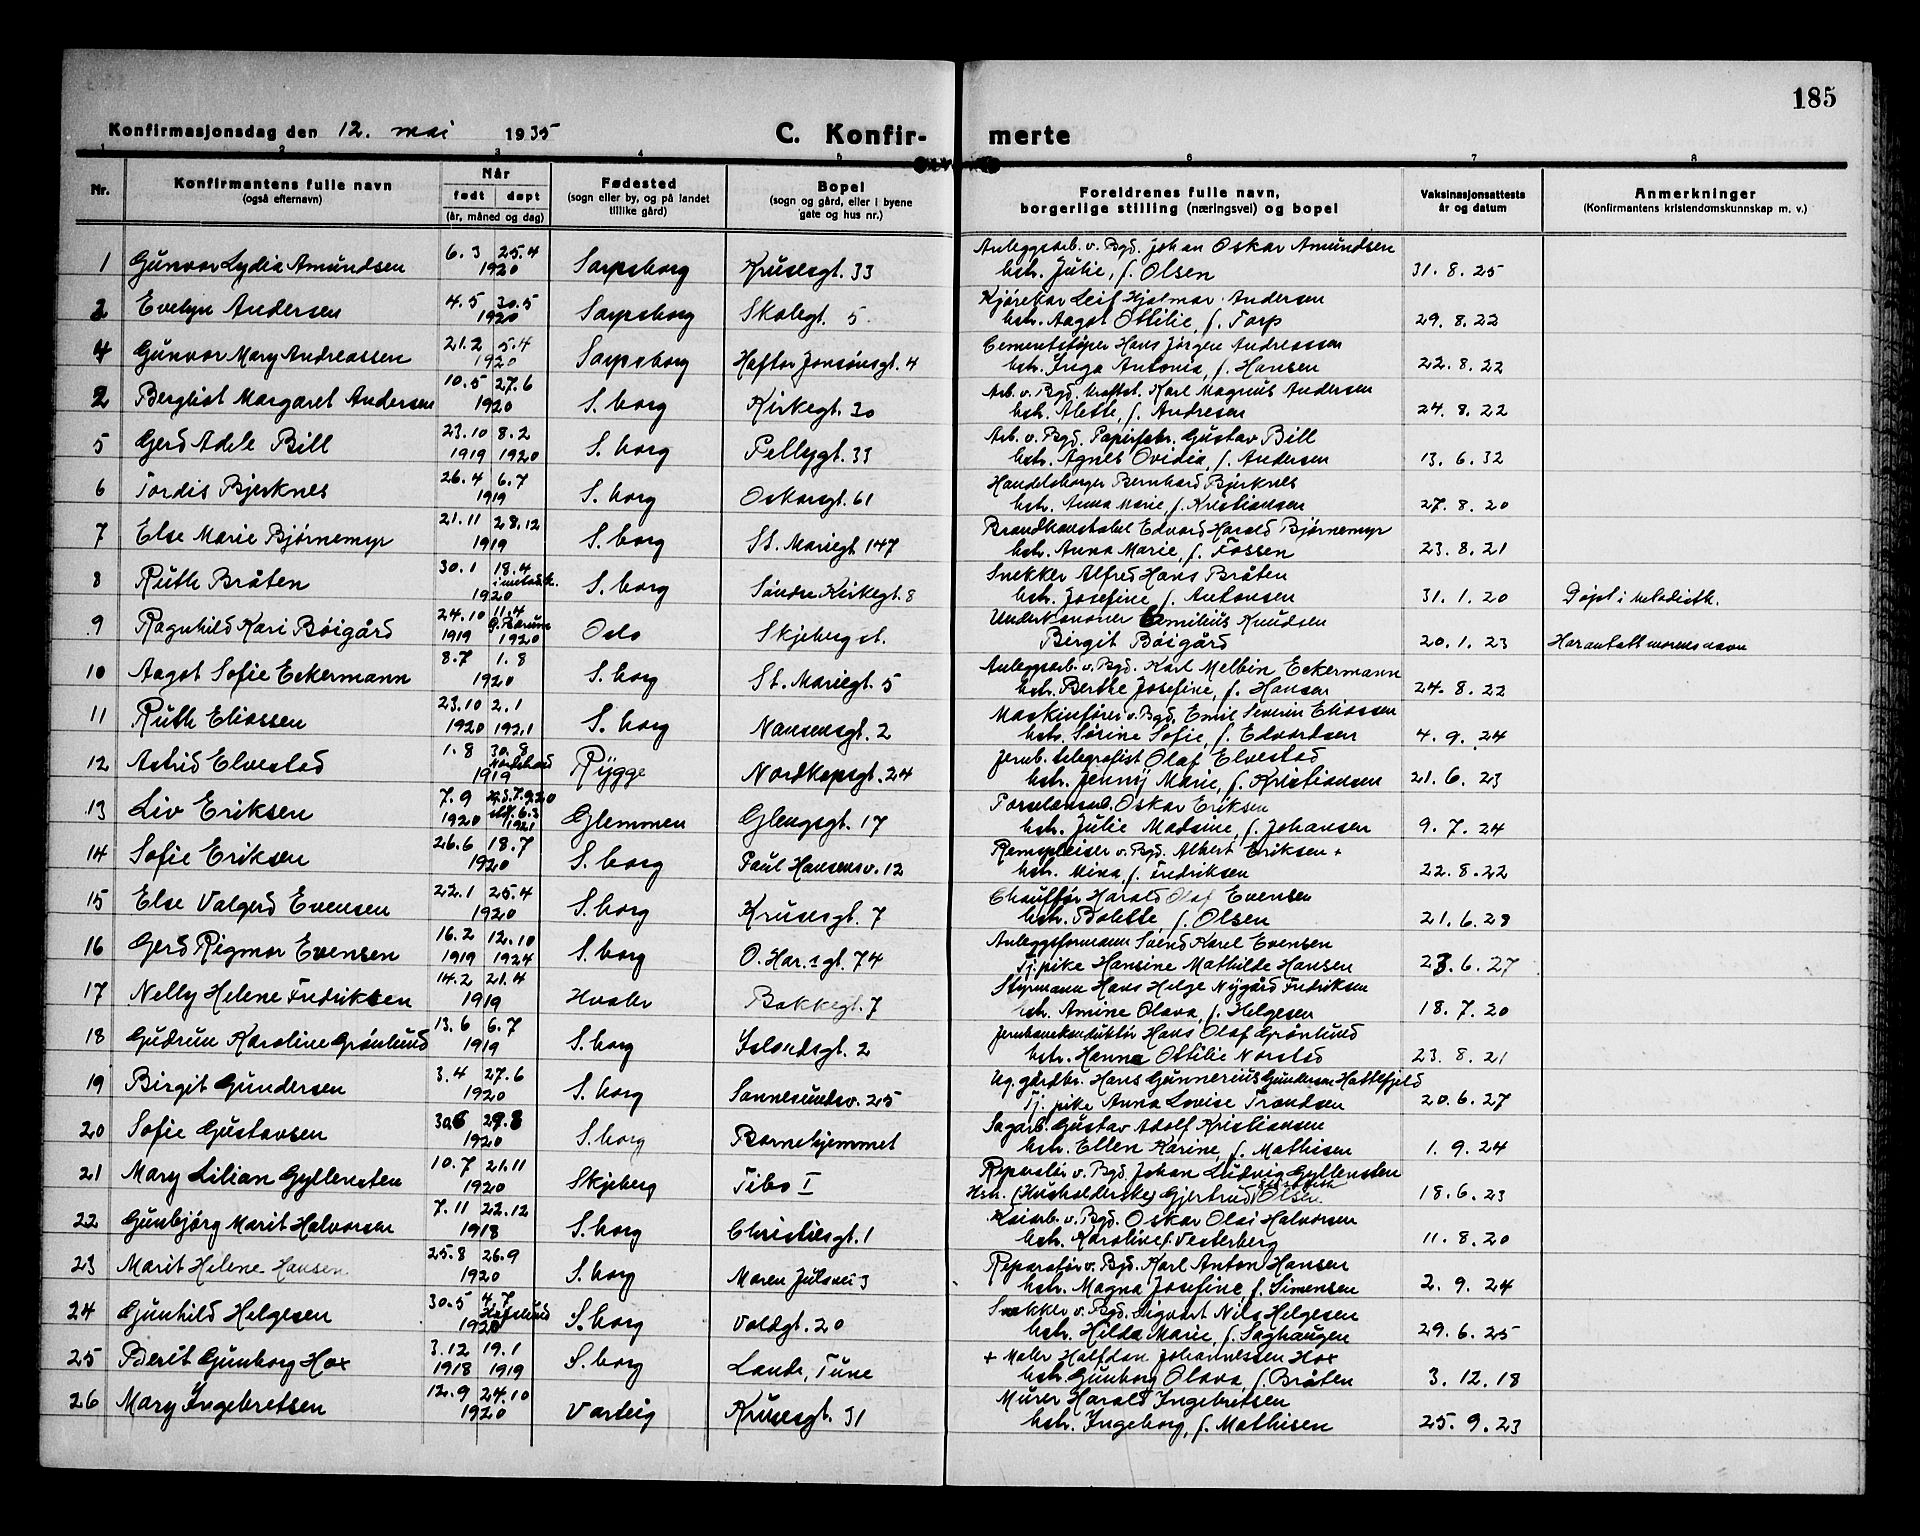 185
Konfirmasjonsdag den 12. mai 1935 C. Konfir- merte
1 2 3 4 5 6 7 8
Nr. Konfirmantens fulle navn (også efternavn) Når født døpt (år, måned og dag) Fødested (sogn eller by, og på landet tillike gård) Bopel (sogn og gård, eller i byene gate og hus nr.) Foreldrenes fulle navn, borgerlige stilling (næringsvei) og bopel Vaksinasjonsattests år og datum Anmerkninger (Konfirmantens kristendomskunnskap m. v.)
1 Gunvor Lydia Amundsen 6.3 25.4 1920 Sarpsborg Krusesgt. 33 Anleggsarb. v. Bgd. Johan Oskar Amundsen
hstr. Julie, f. Olsen 31.8.25
3 Evelyn Andersen 4.5 30.5 1920 Sarpsborg Skolegt. 5 Kjørekar Leif Hjalmar Andersen
hstr. Aagot Ottilie, f. Torp 29.8.22
4 Gunvor Mary Andreassen 21.2 5.4 1920 Sarpsborg Haftor Jonsønsgt. 4 Cementstøper Hans Jørgen Andreassen
hstr. Inga Antonia, f. Hansen 22.8.22
2 Bergliot Margaret Andersen 10.5 27.6 1920 S.borg Kirkegt. 30 Arb. v. Bgd. kraftst. Karl Magnus Andersen
hstr. Alette, f. Andresen 24.8.22
5 Gerd Adele Bill 23.10 1919 8.2 1920 S.borg Pellygt. 33 Arb. v. Bgd. Papirfabr. Gustav Bill
hstr. Agnes Ovidia, f. Andersen 13.6.32
6 Tordis Bjerknes 26.4 6.7 1919 S.borg Oskarsgt. 61 Handelsborger Bernhard Bjerknes
hstr. Anna Marie, f. Kristiansen 27.8.20
7 Else Marie Bjørnemyr 21.11 28.12 1919 S.borg St. Mariegt. 147 Brandkonstabel Edvard Harald Bjørnemyr
hstr. Anna Marie, f. Fossen 23.8.21
8 Ruth Bråten 30.1 18.4 i metodistk. 1920 S.borg Søndre Kirkegt. 8 Snekker Alfred Hans Bråten
hstr. Josefine, f. Antonsen 31.1.20 Døpt i metodistk.
9 Ragnhild Kari Bøigård 24.10 1919 11.4 Ø. Bærum 1920 Oslo Skjeberg st. Underkanoner Emilius Knudsen
Birgit Bøigård 20.1.23 Har antatt morens navn
10 Aagot Sofie Eckermann 8.7 1.8 1920 S.borg St. Mariegt. 5 Anleggsarb. v. Bgd. Karl Melbin Eckermann
hstr. Berthe Josefine, f. Hansen 24.8.22
11 Ruth Eliassen 23.10 1920 2.1 1921 S.borg Nansensgt. 2 Maskinfører v. Bgd. Emil Severin Eliassen
hstr. Sørine Sofie, f. Edvardsen 4.9.24
12 Astrid Elvestad 1.8 30.8 1919 Rygge Nordkapsgt. 24 Jernb. telegrafist Olaf Elvestad
hstr. Jenny Marie, f. Kristiansen 21.6.23
13 Liv Eriksen 7.9 1920 hj.d. 7.9.20 stf. 6.3 1921 Glemmen Glengsgt. 17 Porselensarb. Oskar Eriksen
hstr. Julie Madsine, f. Johansen 9.7.24
14 Sofie Eriksen 26.6 18.7 1920 S.borg Paul Hansensv. 12 Remspleiser v. Bgd. Albert Eriksen +
hstr. Mina, f. Fredriksen 22.8.22
15 Else Valgerd Evensen 22.1 25.4 1920 S.borg Krusesgt. 7 Chauffør Harald Olaf Evensen
hstr. Bolette, f. Olsen 21.6.29
16 Gerd Rigmor Evensen 16.2 1919 12.10 1924 S.borg O. Har.sgt. 74 Anleggsformann Svend Karel Evensen
Tj.pike Hansine Mathilde Hansen 23.6.27
17 Nelly Helene Fredriksen 14.2 21.4 1919 Hvaler Bakkegt. 7 Styrmann Hans Helge Nygård Fredriksen
hstr. Amine Olava, f. Helgesen 18.7.20
18 Gudrun Karoline Grønlund 13.6 6.7 1919 S.borg Islandsgt. 2 Jernbanekonduktør Hans Olaf Grønlund
hstr. Hanna Ottilie Norstad 23.8.21
19 Birgit Gundersen 3.4 27.6 1920 S.borg Sannesundsv. 25 Ug. gårdbr. Hans Gunnerius Gundersen Hattefjeld
Tj. pike Anna Lovise Trandsen 20.6.27
20 Sofie Gustavsen 30.6 29.8 1920 S.borg Barnehjemmet Sagarb. Gustav Adolf Kristiansen
hstr. Ellen Karine, f. Mathisen 1.9.24
21 Mary Lilian Gyllensten 10.7 21.11 1920 Skjeberg Tibo I Reparatør v. Bgd. Johan Ludvig Gyllensten
Hstr. (Husholderske) Gjertrud Elisabeth Olsen 18.6.23
22 Gunbjørg Marit Halvorsen 7.11 22.12 1918 S.borg Christiesgt. 1 Kaiarb. v. Bgd. Oskar Olai Halvorsen
hstr. Karoline, f. Vesterberg 11.8.20
23 Marit Helene Hansen 25.8 26.9 1920 S.borg Maren Julsvei 3 Reparatør v. Bgd. Karl Anton Hansen
hstr. Magna Josefine, f. Simensen 2.9.24
24 Gunhild Helgesen 30.5 4.7 Hafslund 1920 S.borg Voldgt. 20 Snekker v. Bgd. Sigvart Nils Helgesen
hstr. Hilda Marie, f. Saghaugen 29.6.25
25 Berit Gunborg Hox 3.12 1918 19.1 1919 S.borg Lande, Tune + Maler Halfdan Johannessen Hox
hstr. Gunborg Olava, f. Bråten 3.12.18
26 Mary Ingebretsen 12.9 24.10 1920 Varteig Krusesgt. 31 Murer Harald Ingebretsen
hstr. Ingeborg, f. Mathisen 25.9.23